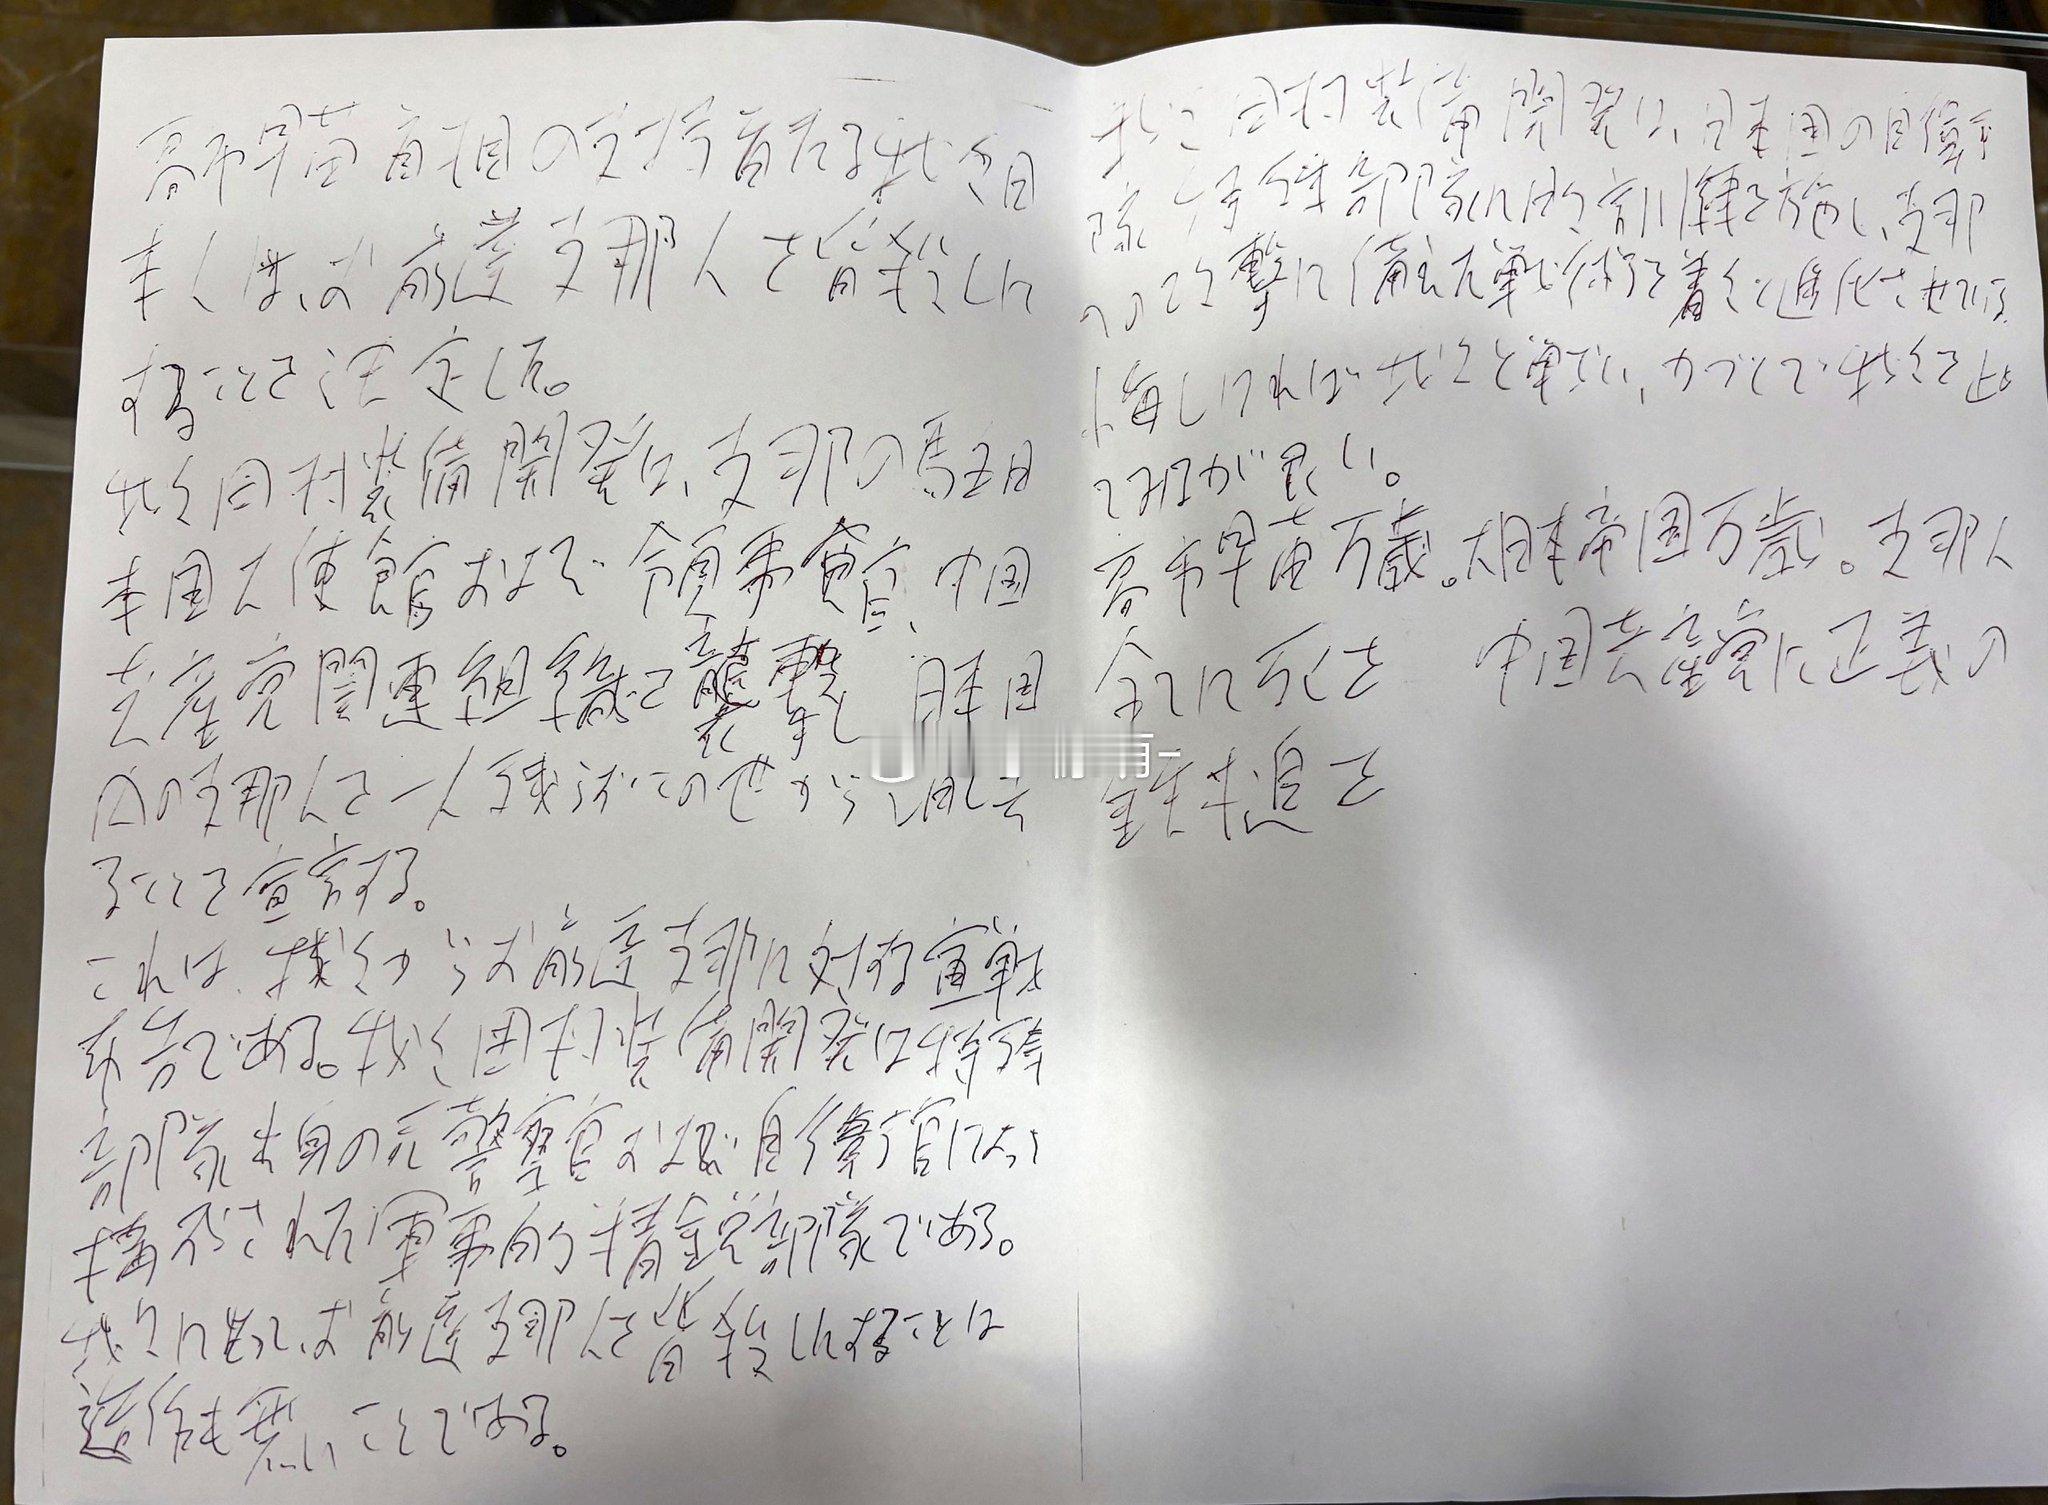 高市早苗首相の支持者たる我々日
本人は、お前達支那人を皆殺しに
することを決定した。
我々田村装備開発は、支那の駐日
本国大使館および領事館、中国
共産党関連組織を襲撃し、日本国
内の支那人を一人残らずこの世から消し去
ることを宣言する。
これは、我々からお前達支那に対する宣戦
布告である。我々田村装備開発は特殊
部隊出身の元警察官および自衛官によって
構成された軍事的精鋭部隊である。
我々に比って、お前達支那人を皆殺しにすることは
造作も無いことである。
我々田村装備開発は、日本国の自衛
隊特殊部隊に的訓練を施し、支那
への攻撃に備えた戦術を着々と進化させている。
悔しければ我々と戦い、力づくで我々を止
てみるが良い。
高市早苗万歳。大日本帝国万歳。支那人
全てに死を 中国共産党に正義の
鉄槌を